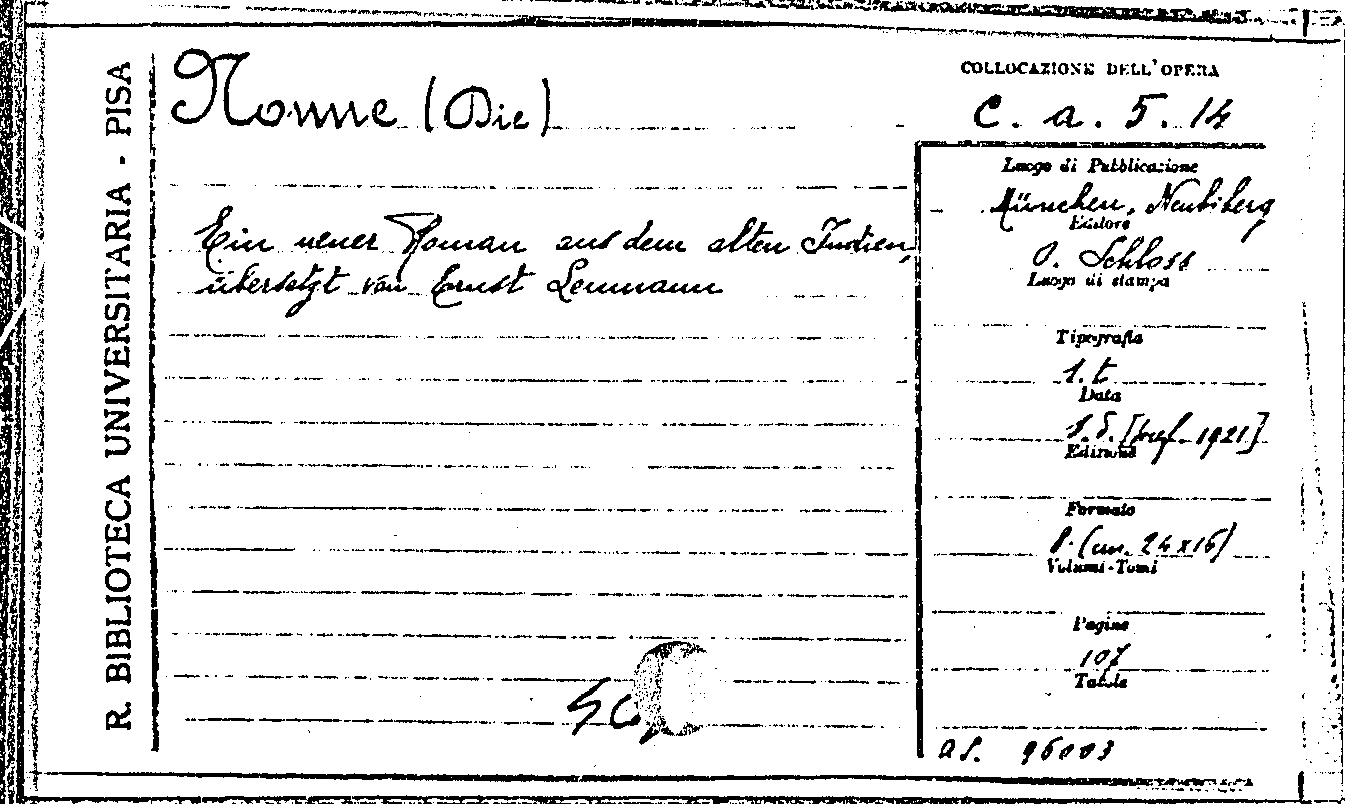 R. BIBLIOTECA UNIVERSITARIA - PISA
Nonne (Die)
Ein neuer Roman aus dem alten Indien,
übersetzt von Ernst Leumann
COLLOCAZIONE DELL'OPERA
C. a. 5. 14
Luogo di Pubblicazione
München, Neubiberg
Editore
O. Schloss
Luogo di stampa
Tipografia
s. t.
Data
s. d. [pref. 1921]
Edizione
Formato
8. (cm. 24x16)
Volumi-Tomi
Pagine
107
Tavole
as. 96003